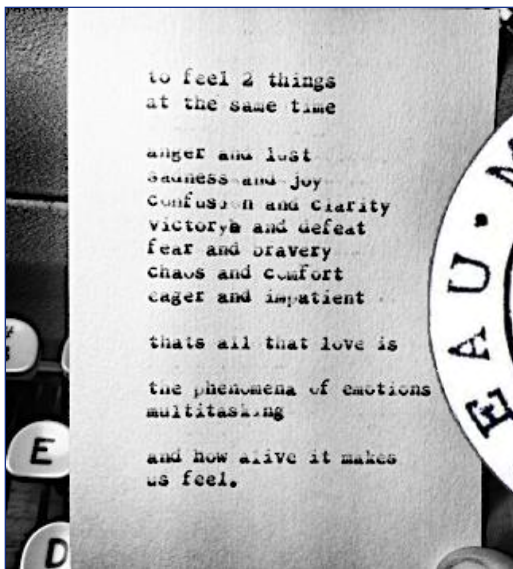 to feel 2 things
at the same time
anger and lust
sadness and joy
confusion and clarity
victory and defeat
fear and bravery
chaos and comfort
eager and impatient
thats all that love is
the phenomena of emotions
multitasking
and how alive it makes
us feel.
E
D
EAU · M